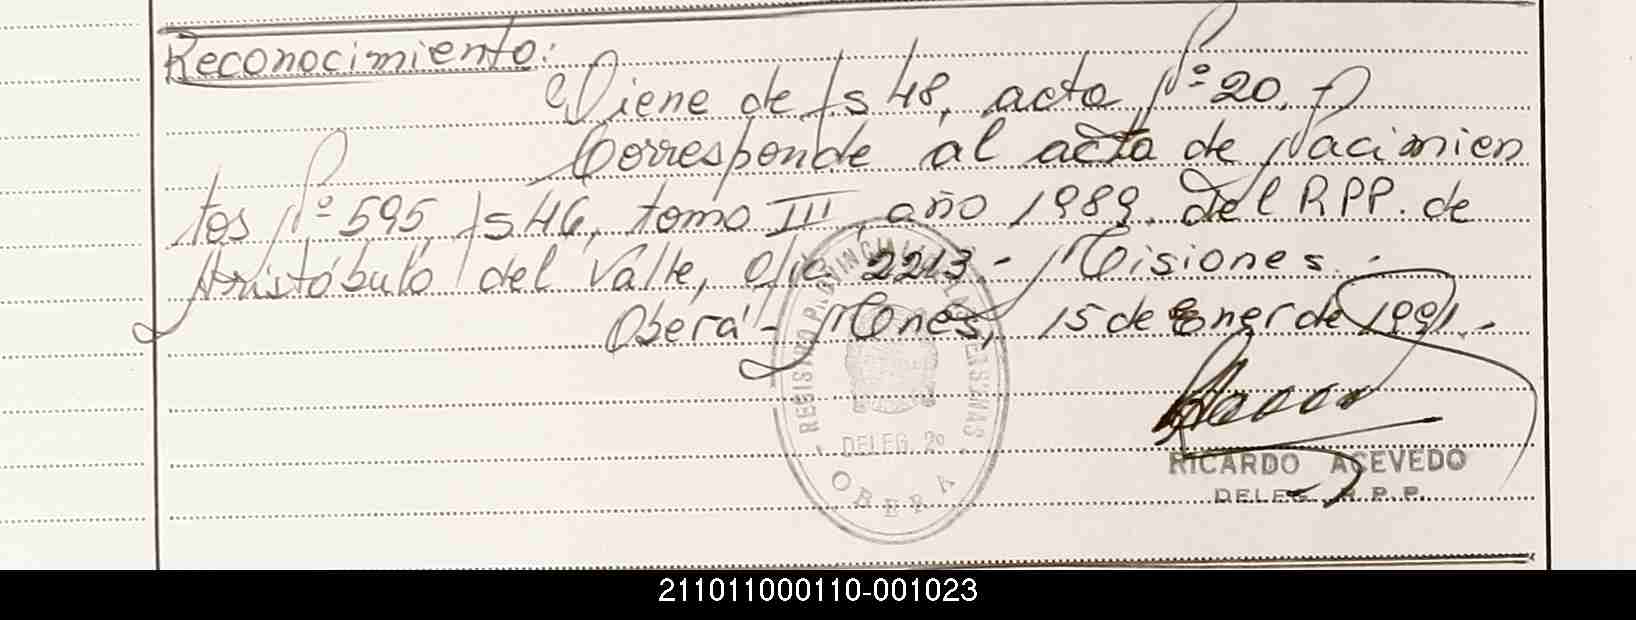 Reconocimiento:
Viene de fs 48, acta Nº 20.
Corresponde al acta de Nacimien
tos Nº 595, fs 46, tomo III, año 1989. del RPP. de
Aristóbulo del Valle, Ofic 2213.- Misiones.-
Oberá - Mnes, 15 de Ener de 1991.-
REGISTRO PROVINCIAL DE LAS PERSONAS
DELEG. 2º
OBERA
RICARDO ACEVEDO
DELEG. R.P.P.
211011000110-001023